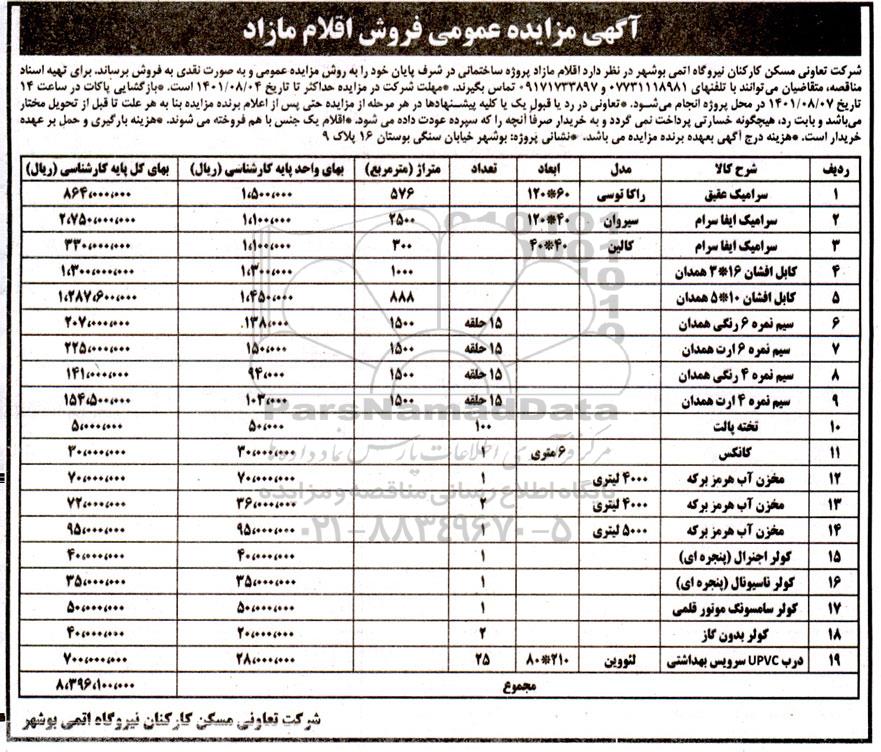 آگهی مزایده عمومی فروش اقلام مازاد
شرکت تعاونی مسکن کارکنان نیروگاه اتمی بوشهر در نظر دارد اقلام مازاد پروژه ساختمانی در شرف پایان خود را به روش مزایده عمومی و به صورت نقدی به فروش برساند. برای تهیه اسناد
مناقصه، متقاضیان می‌توانند با تلفنهای ۰۷۷۳۱۱۱۸۹۸۱ و ۰۹۱۷۱۷۳۳۸۹۷ تماس بگیرند. *مهلت شرکت در مزایده حداکثر تا تاریخ ۱۴۰۱/۰۸/۰۴ است. *بازگشایی پاکات در ساعت ۱۴
تاریخ ۱۴۰۱/۰۸/۰۷ در محل پروژه انجام می‌شود. *تعاونی در رد یا قبول یک یا کلیه پیشنهادها در هر مرحله از مزایده حتی پس از اعلام برنده مزایده بنا به هر علت تا قبل از تحویل مختار
می‌باشد و بابت رد، هیچگونه خسارتی پرداخت نمی گردد و به خریدار صرفا آنچه را که سپرده عودت داده می شود. *اقلام یک جنس با هم فروخته می شوند. *هزینه بارگیری و حمل بر عهده
خریدار است. *هزینه درج آگهی بعهده برنده مزایده می باشد. *نشانی پروژه: بوشهر خیابان سنگی بوستان ۱۶ پلاک ۹
ردیف شرح کالا مدل ابعاد تعداد متراژ (مترمربع) بهای واحد پایه کارشناسی (ریال) بهای کل پایه کارشناسی (ریال)
۱ سرامیک عقیق راکا توسی ۶۰*۱۲۰ ۵۷۶ ۱،۵۰۰،۰۰۰ ۸۶۴،۰۰۰،۰۰۰
۲ سرامیک ایفا سرام سیروان ۴۰*۱۲۰ ۲۵۰۰ ۱،۱۰۰،۰۰۰ ۲،۷۵۰،۰۰۰،۰۰۰
۳ سرامیک ایفا سرام کالین ۴۰*۴۰ ۳۰۰ ۱،۱۰۰،۰۰۰ ۳۳۰،۰۰۰،۰۰۰
۴ کابل افشان ۱۶*۳ همدان ۱۰۰۰ ۱،۳۰۰،۰۰۰ ۱،۳۰۰،۰۰۰،۰۰۰
۵ کابل افشان ۱۰*۵ همدان ۸۸۸ ۱،۴۵۰،۰۰۰ ۱،۲۸۷،۶۰۰،۰۰۰
۶ سیم نمره ۶ رنگی همدان ۱۵ حلقه ۱۵۰۰ ۱۳۸،۰۰۰ ۲۰۷،۰۰۰،۰۰۰
۷ سیم نمره ۶ ارت همدان ۱۵ حلقه ۱۵۰۰ ۱۵۰،۰۰۰ ۲۲۵،۰۰۰،۰۰۰
۸ سیم نمره ۴ رنگی همدان ۱۵ حلقه ۱۵۰۰ ۹۴،۰۰۰ ۱۴۱،۰۰۰،۰۰۰
۹ سیم نمره ۴ ارت همدان ۱۵ حلقه ۱۵۰۰ ۱۰۳،۰۰۰ ۱۵۴،۵۰۰،۰۰۰
۱۰ تخته پالت ۱۰۰ ۵۰،۰۰۰ ۵،۰۰۰،۰۰۰
۱۱ کانکس ۶ متری ۱ ۳۰،۰۰۰،۰۰۰ ۳۰،۰۰۰،۰۰۰
۱۲ مخزن آب هرمز برکه ۴۰۰۰ لیتری ۱ ۷۰،۰۰۰،۰۰۰ ۷۰،۰۰۰،۰۰۰
۱۳ مخزن آب هرمز برکه ۴۰۰۰ لیتری ۲ ۳۶،۰۰۰،۰۰۰ ۷۲،۰۰۰،۰۰۰
۱۴ مخزن آب هرمز برکه ۵۰۰۰ لیتری ۱ ۹۵،۰۰۰،۰۰۰ ۹۵،۰۰۰،۰۰۰
۱۵ کولر اجنرال (پنجره ای) ۱ ۴۰،۰۰۰،۰۰۰ ۴۰،۰۰۰،۰۰۰
۱۶ کولر ناسیونال (پنجره ای) ۱ ۳۵،۰۰۰،۰۰۰ ۳۵،۰۰۰،۰۰۰
۱۷ کولر سامسونگ موتور قلمی ۱ ۵۰،۰۰۰،۰۰۰ ۵۰،۰۰۰،۰۰۰
۱۸ کولر بدون گاز ۲ ۲۰،۰۰۰،۰۰۰ ۴۰،۰۰۰،۰۰۰
۱۹ درب UPVC سرویس بهداشتی لئووین ۲۱۰*۸۰ ۲۵ ۲۸،۰۰۰،۰۰۰ ۷۰۰،۰۰۰،۰۰۰
مجموع ۸،۳۹۶،۱۰۰،۰۰۰
شرکت تعاونی مسکن کارکنان نیروگاه اتمی بوشهر
ParsNamadData
مرکز فرآوری اطلاعات پارس نماد داده‌ها
پایگاه اطلاع رسانی مناقصه و مزایده
۰۲۱-۸۸۳۴۹۶۷۰-۵